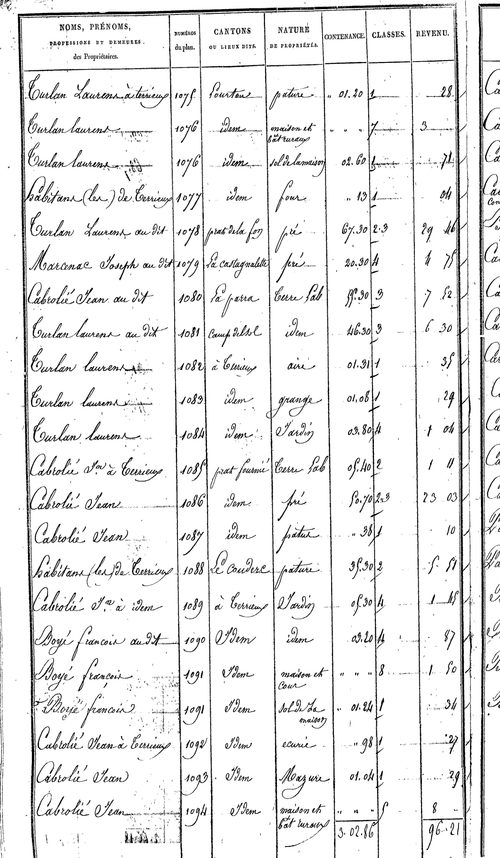 NOMS, PRÉNOMS, PROFESSIONS ET DEMEURES. des Propriétaires. NUMÉROS du plan. CANTONS OU LIEUX DITS. NATURE DE PROPRIÉTÉS. CONTENANCE. CLASSES. REVENU.
Turlan Laurens à terrieux 1075 Pourtou pature " 01.20 1 28
Turlan laurens 1076 idem maison et bât ruraux " " " 7 3
Turlan laurens 1076 idem sol de la maison 02.60 1 71
habitans (les) de Terrieux 1077 idem four " 13 1 04
Turlan Laurens au dit 1078 prat de la fon pré 67.30 2.3 29 46
Marcenac Joseph au dit 1079 La castagnalette pré 20.30 4 4 75
Cabrolié Jean au dit 1080 La parra Terre Lab 55.30 3 7 52
Turlan laurens au dit 1081 camp del sol idem 46.30 3 6 30
Turlan laurens 1082 à Terrieux aire 01.31 1 35
Turlan laurens 1083 idem grange 01.08 1 29
Turlan laurens 1084 idem Jardin 03.80 4 1 04
Cabrolié Jn à Terrieux 1085 prat fournié Terre Lab 05.40 2 1 11
Cabrolié Jean 1086 idem pré 50.70 2.3 23 03
Cabrolié Jean 1087 idem patus " 38 1 10
habitans (les) de Terrieux 1088 Le couderc pature 35.30 2 5 51
Cabrolié à idem 1089 à Terrieux Jardin 05.30 4 1 45
Boyé francois au dit 1090 Idem idem 03.20 4 87
Boyé francois 1091 Idem maison et cour " " " 8 1 50
Boyé francois 1091 Idem sol de la maison " 01.24 1 34
Cabrolié Jean à Terrieux 1092 Idem ecurie " 98 1 27
Cabrolié Jean 1093 Idem Mazure 01.04 1 29
Cabrolié Jean 1094 Idem maison et bât ruraux " " " 5 8
3.02.86 96.21